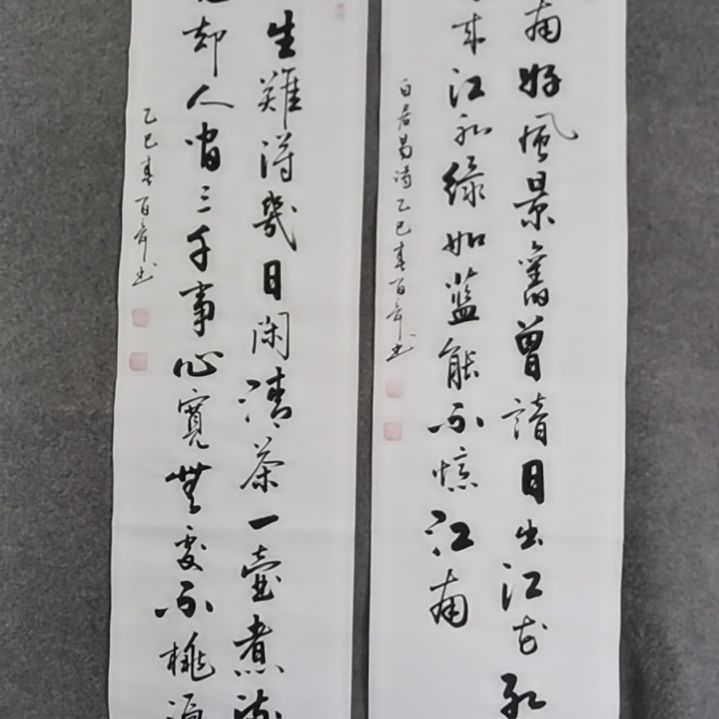 南好風景舊曾諳日出江花紅
來江水綠如藍能不憶江南
白居易詩乙巳春百年書
生難得幾日閑清茶一壺煮流
却人間三千事心寬無處不桃源
乙巳春百年書